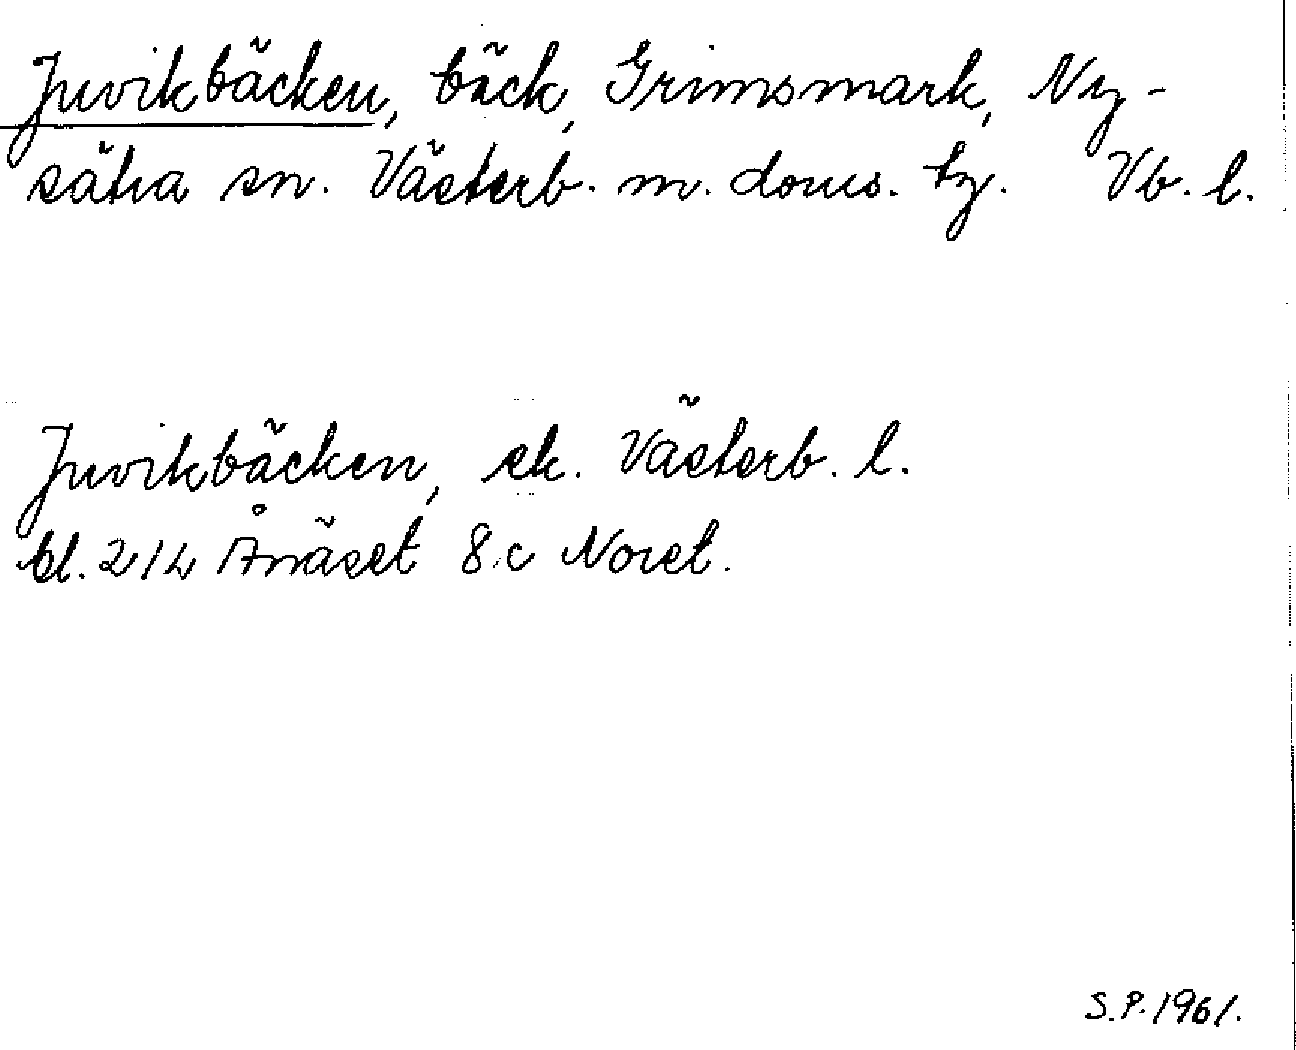 Juvikbäcken, bäck, Grimsmark, Ny-
sätra sn. Västerb. m. doms. tg. Vb. l.
Juvikbäcken, ek. Västerb. l.
bl. 214 Ånäset 8 c Noret.
S.P. 1961.